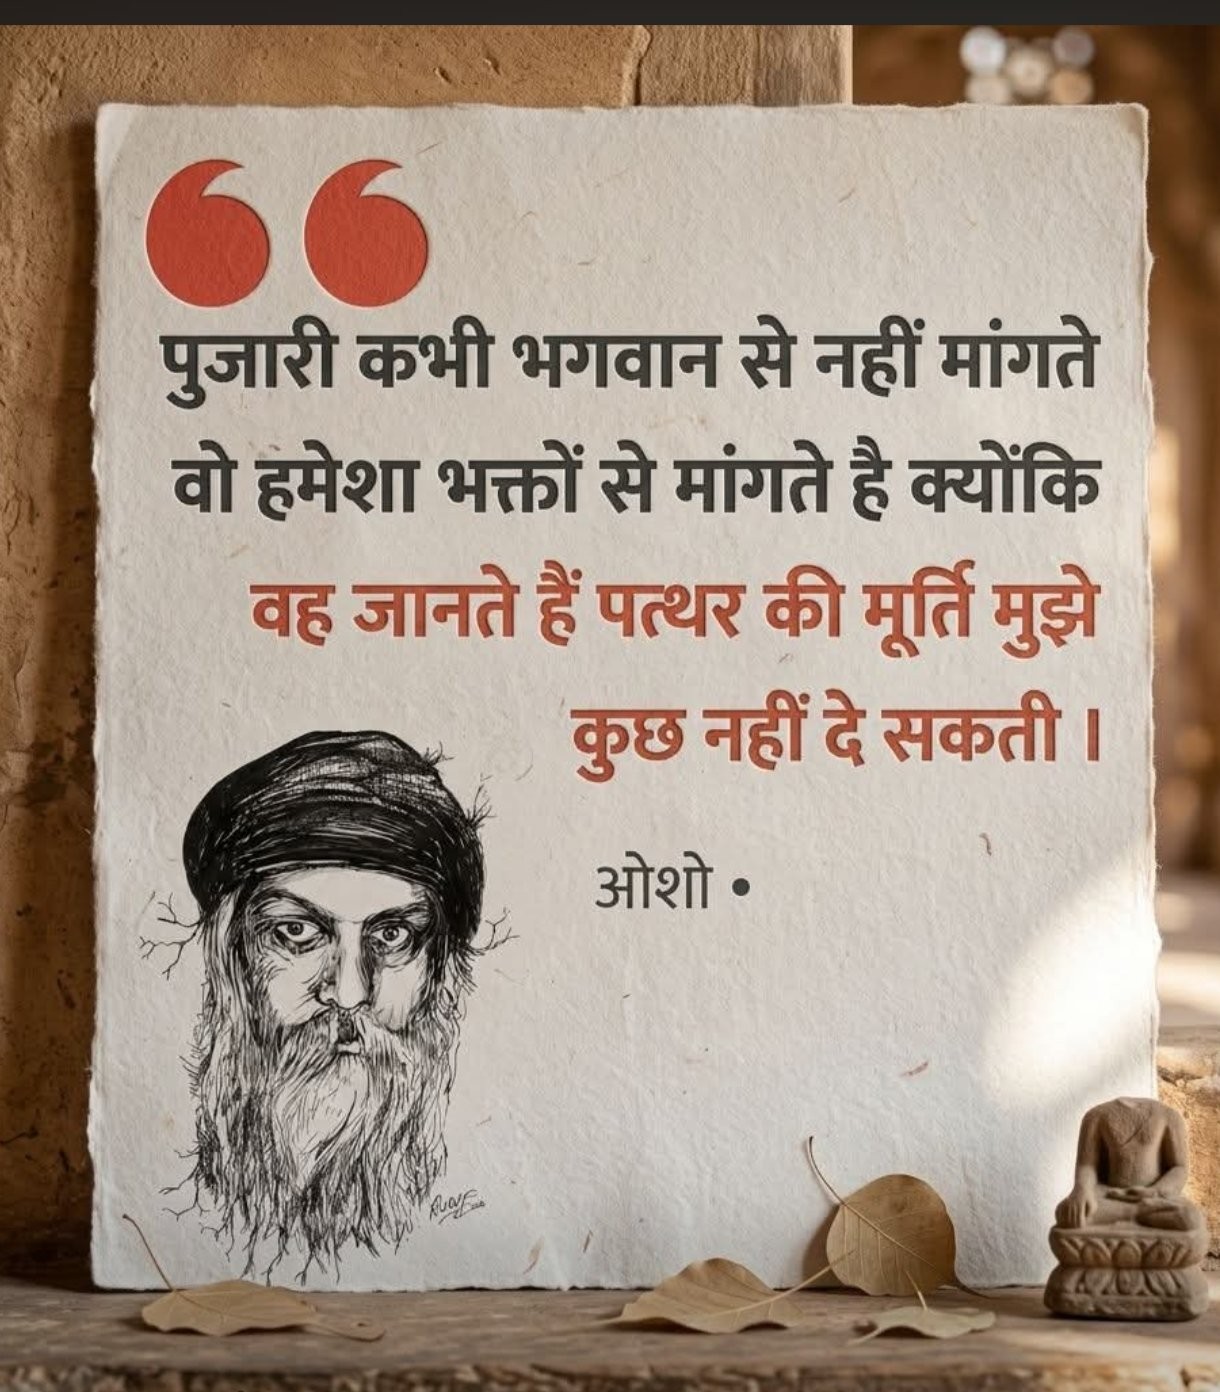 पुजारी कभी भगवान से नहीं मांगते
वो हमेशा भक्तों से मांगते है क्योंकि
वह जानते हैं पत्थर की मूर्ति मुझे
कुछ नहीं दे सकती ।
ओशो •